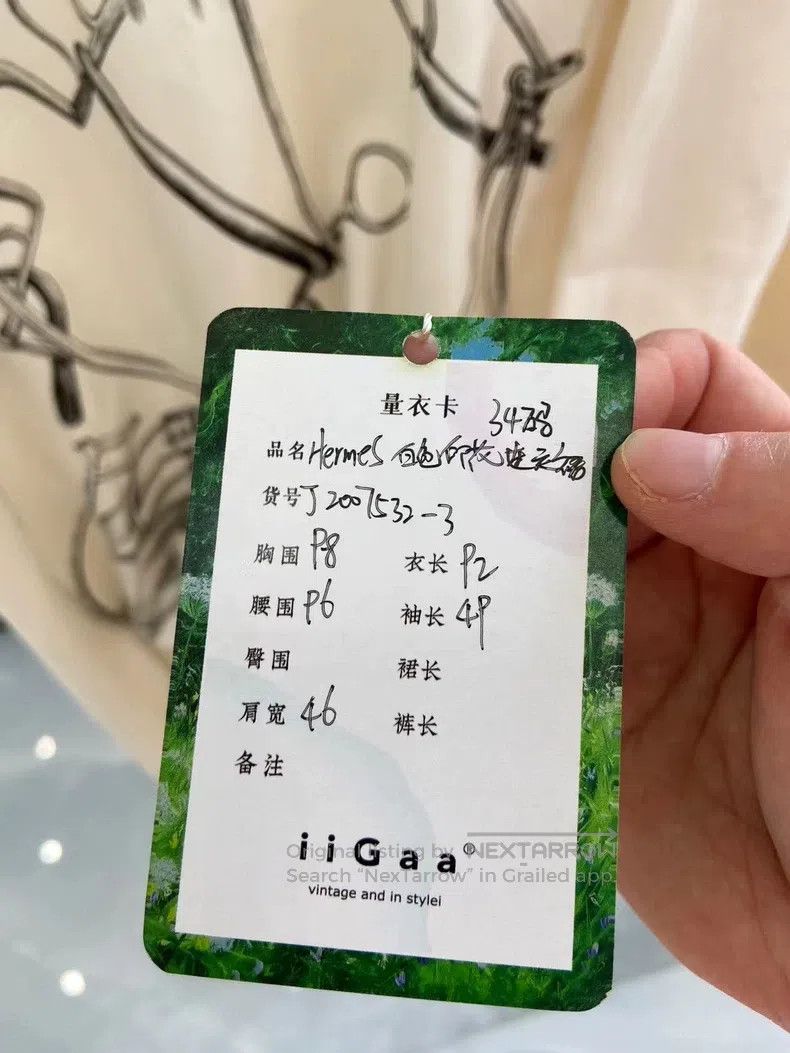 量衣卡 34码
品名 Hermes 白色印花
货号 J2007532-3
胸围 P8 衣长 P2
腰围 P6 袖长 4P
臀围 裙长
肩宽 46 裤长
备注
iiGaa®
Original listing by NEXTARROW
Search “NexTarrow” in Grailed app
vintage and in stylei